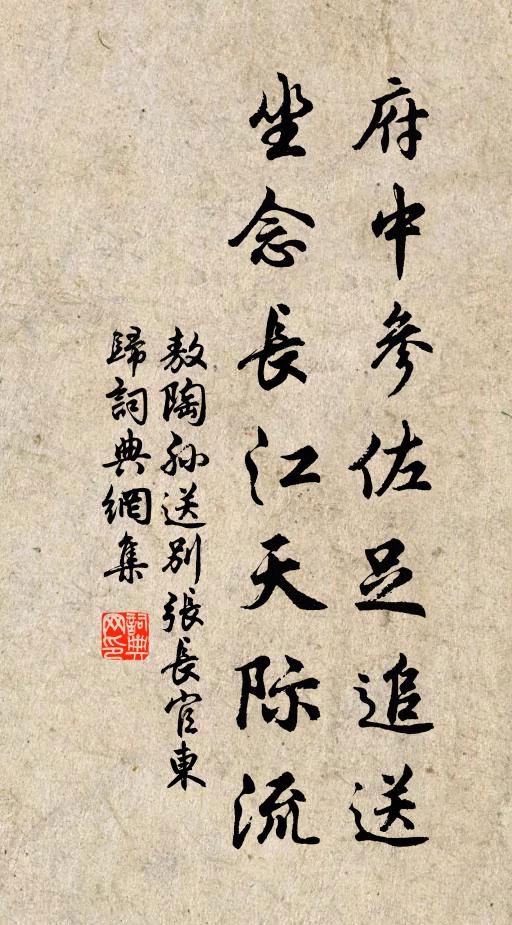 府中參佐足追送
坐念長江天际流
敖陶孙送别張長官東
歸詞典網集
詞典
网印